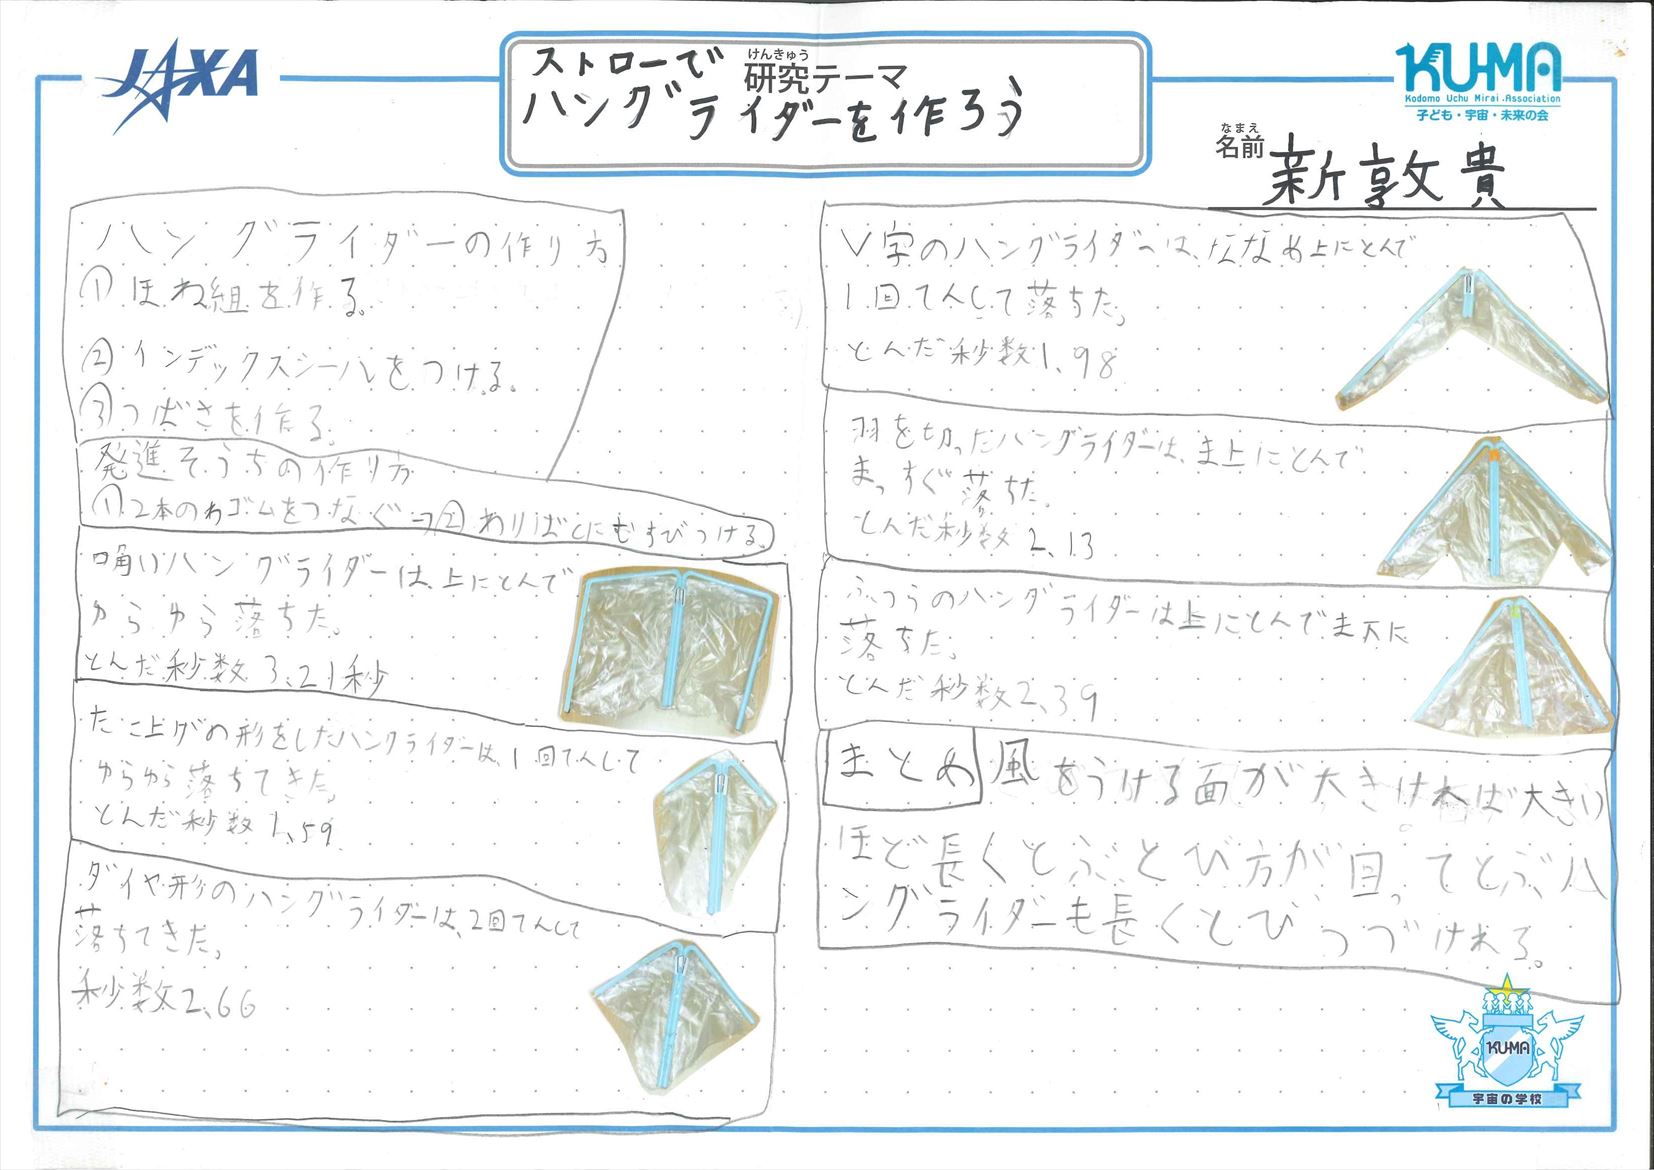 JAXA
ストローで
けんきゅう
研究テーマ
ハングライダーを作ろう
KU-MA
Kodomo Uchu Mirai Association
子ども・宇宙・未来の会
なまえ
名前
新敦貴
ハングライダーの作り方
①ほね組を作る。
②インデックスシールをつける。
③つばさを作る。
発進そうちの作り方
①2本のわゴムをつなぐ→②わりばしにむすびつける。
四角いハングライダーは、上にとんで
ゆらゆら落ちた。
とんだ秒数3.21秒
たこ上げの形をしたハングライダーは、1回てんして
ゆらゆら落ちてきた。
とんだ秒数1.59
ダイヤ形のハングライダーは、2回てんして
落ちてきた。
秒数2.66
V字のハングライダーは、ななめ上にとんで
1回てんして落ちた。
とんだ秒数1.98
羽を切ったハングライダーは、ま上にとんで
まっすぐ落ちた。
とんだ秒数2.13
ふつうのハングライダーは上にとんでま下に
落ちた。
とんだ秒数2.39
まとめ 風をうける面が大きければ大きい
ほど長くとぶ。とび方が回ってとぶハ
ングライダーも長くとびつづけれる。
KU-MA
宇宙の学校